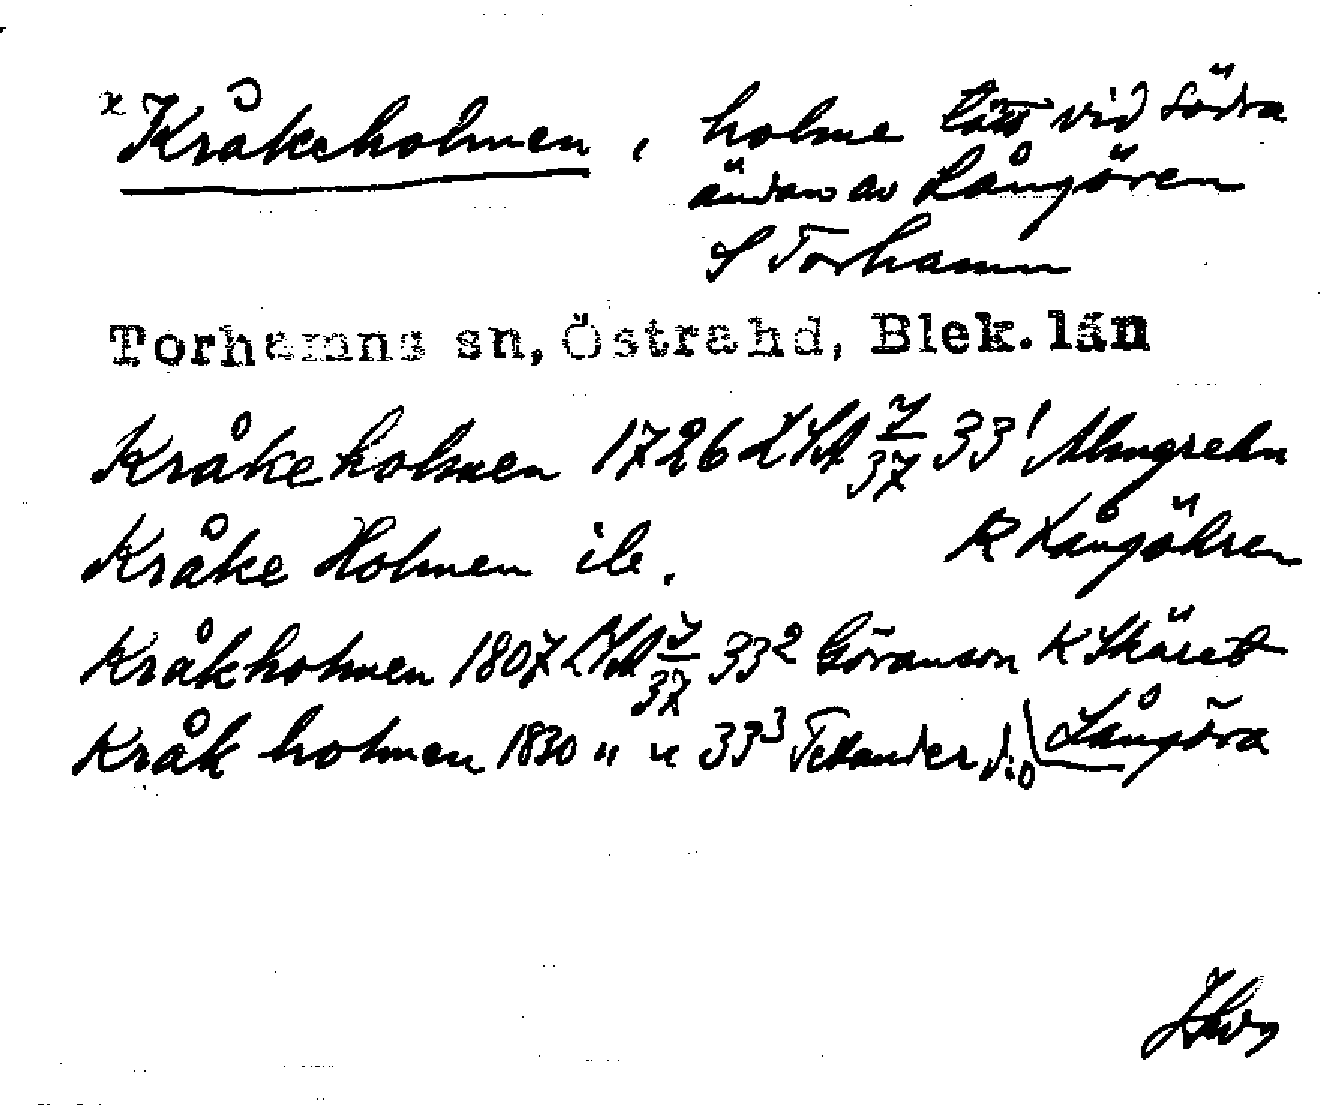 x Kråkeholmen, holme tätt vid södra
ändan av Långören
S Torhamn
Torhamns sn, Östra hd, Blek. län
Kråkeholmen 1726 LSA 7/37 33¹ Almgrehn
Kråke Holmen ib. K Långöhren
Kråkholmen 1807 LSA 7/37 33² Göranson K Skäret
Kråk holmen 1830 " " 33³ Tellander Långöra